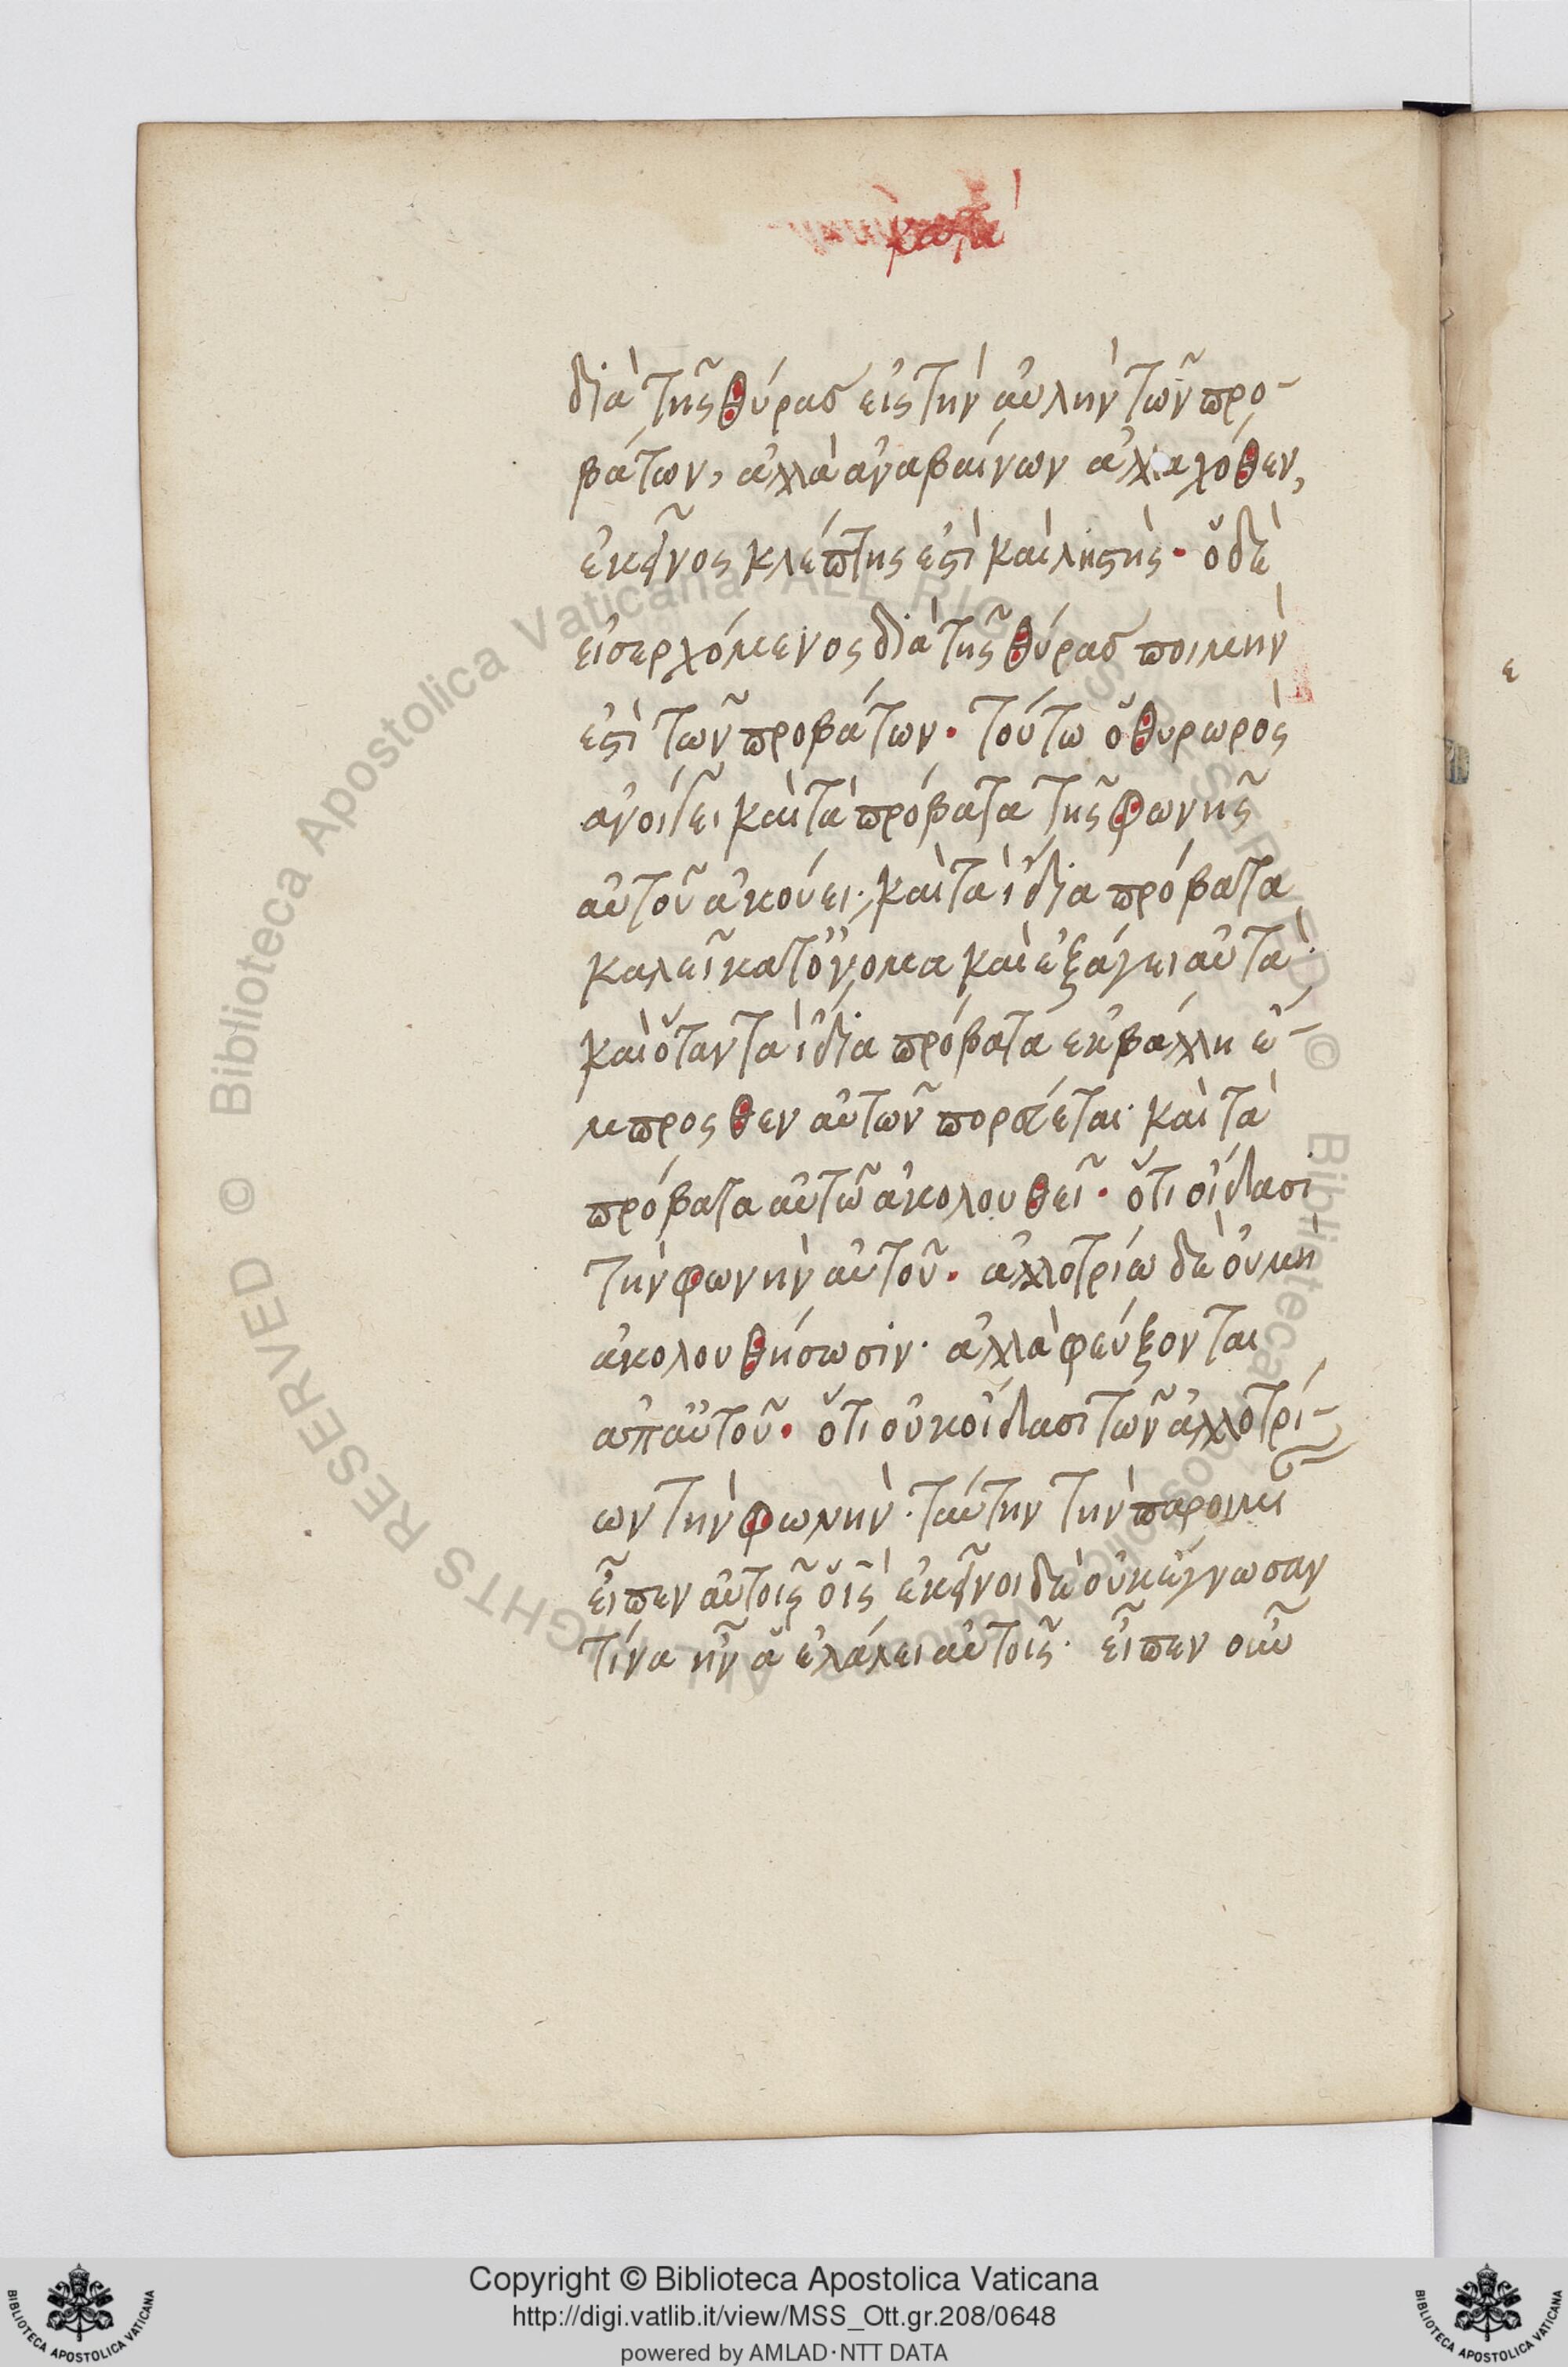 διὰ τῆς θύρας εἰς τὴν αὐλὴν τῶν προ-
βάτων, ἀλλὰ ἀναβαίνων ἀλλαχόθεν,
ἐκεῖνος κλέπτης ἐστὶ καὶ ληστής· ὁ δὲ
εἰσερχόμενος διὰ τῆς θύρας ποιμὴν
ἐστὶ τῶν προβάτων· τούτω ὁ θυρωρὸς
ἀνοίγει καὶ τὰ πρόβατα τῆς φωνῆς
αὐτοῦ ἀκούει· καὶ τὰ ἴδια πρόβατα
καλεῖ κατ' ὄνομα καὶ ἐξάγει αὐτά·
καὶ ὅταν τὰ ἴδια πρόβατα ἐκβάλλη ἔ-
μπροσθεν αὐτῶν πορεύεται· καὶ τὰ
πρόβατα αὐτῶ ἀκολουθεῖ· ὅτι οἴδασι
τὴν φωνὴν αὐτοῦ· ἀλλοτρίω δὲ οὐ μὴ
ἀκολουθήσωσιν· ἀλλὰ φεύξονται
ἀπ' αὐτοῦ· ὅτι οὐκ οἴδασι τῶν ἀλλοτρί-
ων τὴν φωνήν· ταύτην τὴν παροιμι
εἶπεν αὐτοῖς ὁ ις ἐκεῖνοι δὲ οὐκ ἔγνωσαν
τίνα ἦν ἃ ἐλάλει αὐτοῖς· εἶπεν οὖν
Copyright © Biblioteca Apostolica Vaticana
http://digi.vatlib.it/view/MSS_Ott.gr.208/0648
powered by AMLAD·NTT DATA